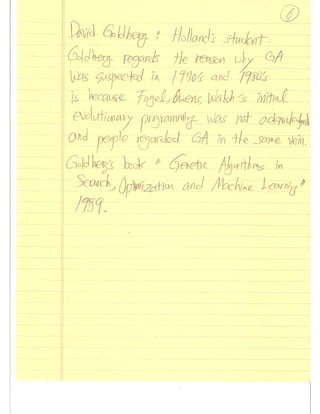 6
David Goldberg : Holland's student.
Goldberg regards the reason why GA
was suspected in 1970's and 1980's
is because Fogel, Owens, Walsh's initial
evolutionary programming was not acknowledged
and people regarded GA in the same vein.
Goldberg's book " Genetic Algorithms in
Search, Optimization and Machine Learning"
1989.